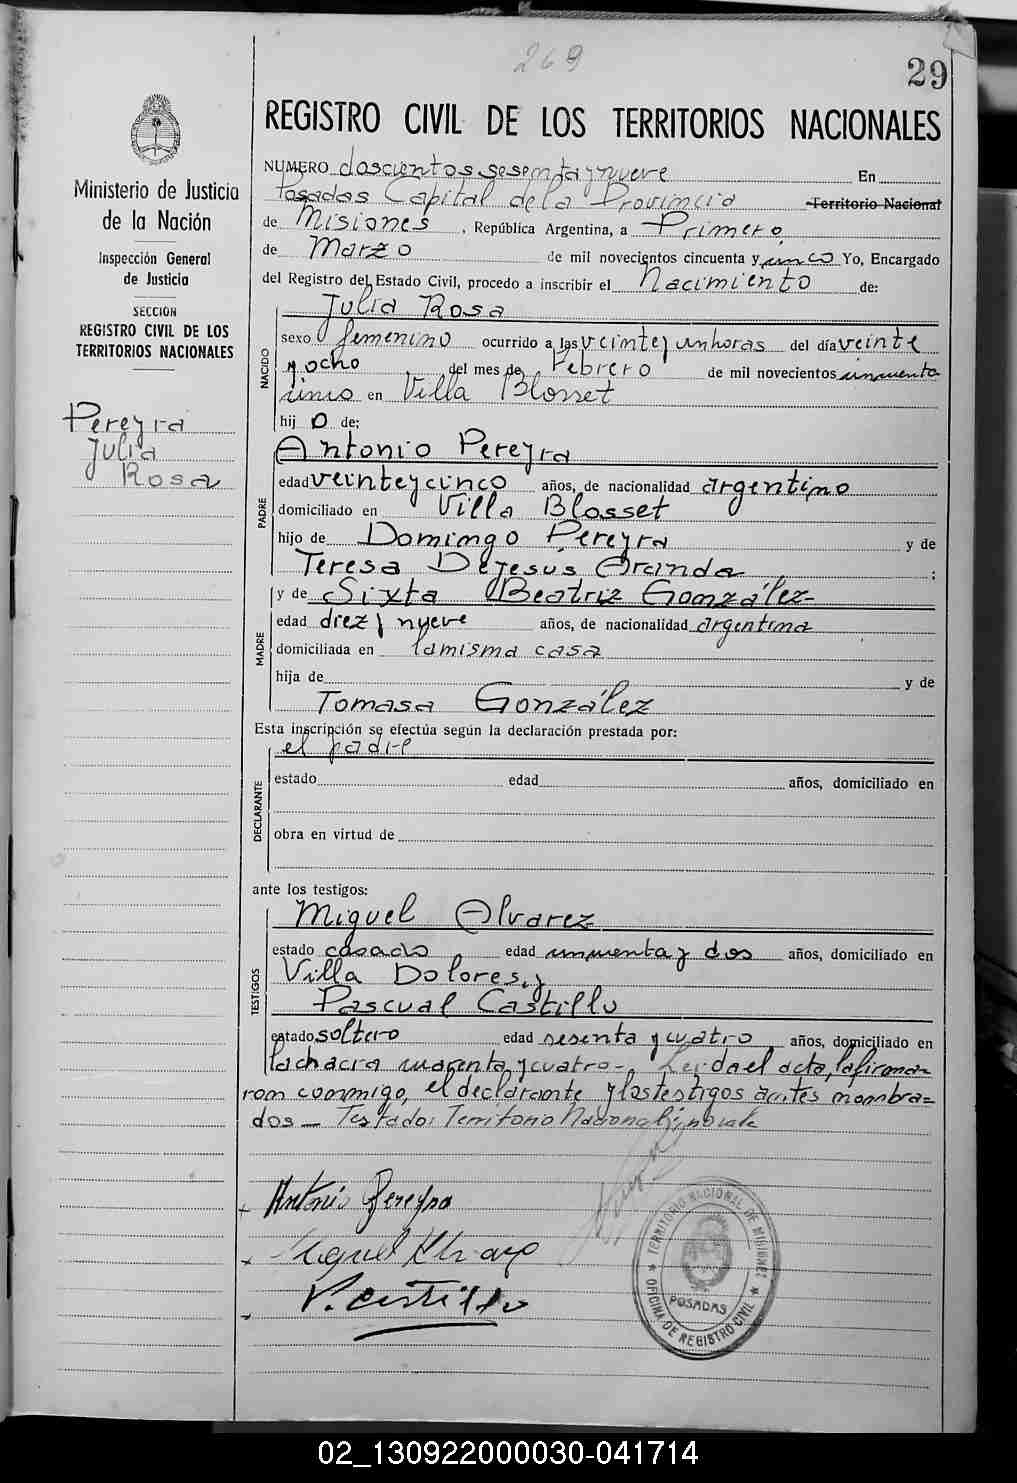 269
29
REGISTRO CIVIL DE LOS TERRITORIOS NACIONALES
Ministerio de Justicia
de la Nación
Inspección General
de Justicia
SECCIÓN
REGISTRO CIVIL DE LOS
TERRITORIOS NACIONALES
Pereyra
Julia
Rosa
NUMERO doscientos sesenta y nueve En
Posadas Capital de la Provincia Territorio Nacional
de Misiones, República Argentina, a Primero
de Marzo de mil novecientos cincuenta y cinco Yo, Encargado
del Registro del Estado Civil, procedo a inscribir el Nacimiento de:
NACIDO
Julia Rosa
sexo femenino ocurrido a las veinte y un horas del día veinte
y ocho del mes de Febrero de mil novecientos cincuenta
cinco en Villa Blosset
hij a de:
PADRE
Antonio Pereyra
edad veinte y cinco años, de nacionalidad argentino
domiciliado en Villa Blosset
hijo de Domingo Pereyra y de
Teresa DeJesús Aranda ;
MADRE
y de Sixta Beatriz González
edad diez y nueve años, de nacionalidad argentina
domiciliada en la misma casa
hija de y de
Tomasa González
Esta inscripción se efectúa según la declaración prestada por:
DECLARANTE
el padre
estado edad años, domiciliado en
obra en virtud de
ante los testigos:
TESTIGOS
Miguel Alvarez
estado casado edad cincuenta y dos años, domiciliado en
Villa Dolores, y
Pascual Castillo
estado soltero edad sesenta y cuatro años, domiciliado en
la chacra cuarenta y cuatro - Leida el acta, la firma-
ron conmigo, el declarante y los testigos antes nombra=
dos - Testado: Territorio Nacional: no vale
Antonio Pereyra
Miguel Alvarez
P. Castillo
TERRITORIO NACIONAL DE MISIONES
POSADAS
OFICINA DE REGISTRO CIVIL
02_130922000030-041714